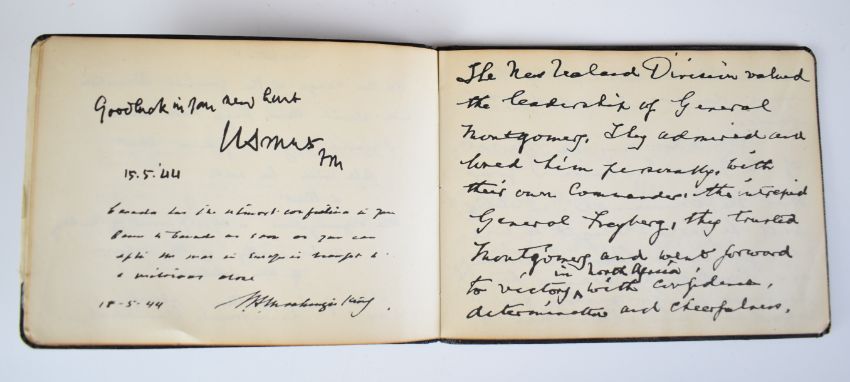 Good luck in your new hunt
JCSmuts
fm
15.5.'44
Canada has the utmost confidence in you
Come to Canada as soon as you can
after the war in Europe is brought to
a victorious close
18-5-44 W L Mackenzie King.
The New Zealand Division valued
the leadership of General
Montgomery. They admired and
loved him personally. With
their own Commander, the intrepid
General Freyberg, they trusted
Montgomery and went forward
in North Africa
to victory with confidence,
determination and cheerfulness.